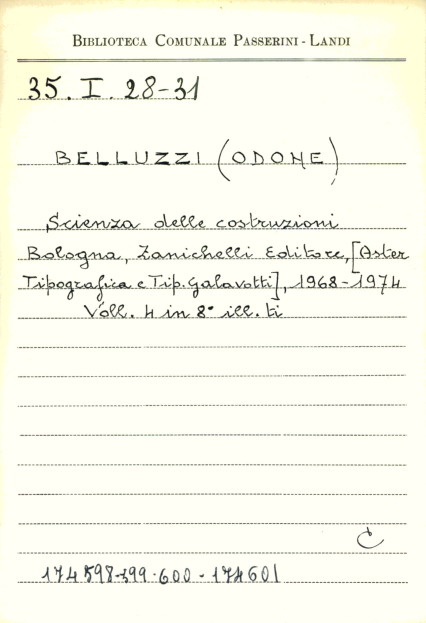 BIBLIOTECA COMUNALE PASSERINI - LANDI
35. I. 28-31
BELLUZZI (ODONE)
Scienza delle costruzioni
Bologna, Zanichelli Editore, [Aster
Tipografica e Tip. Galavotti], 1968-1974
Voll. 4 in 8° ill. ti
174598-599-600-174601